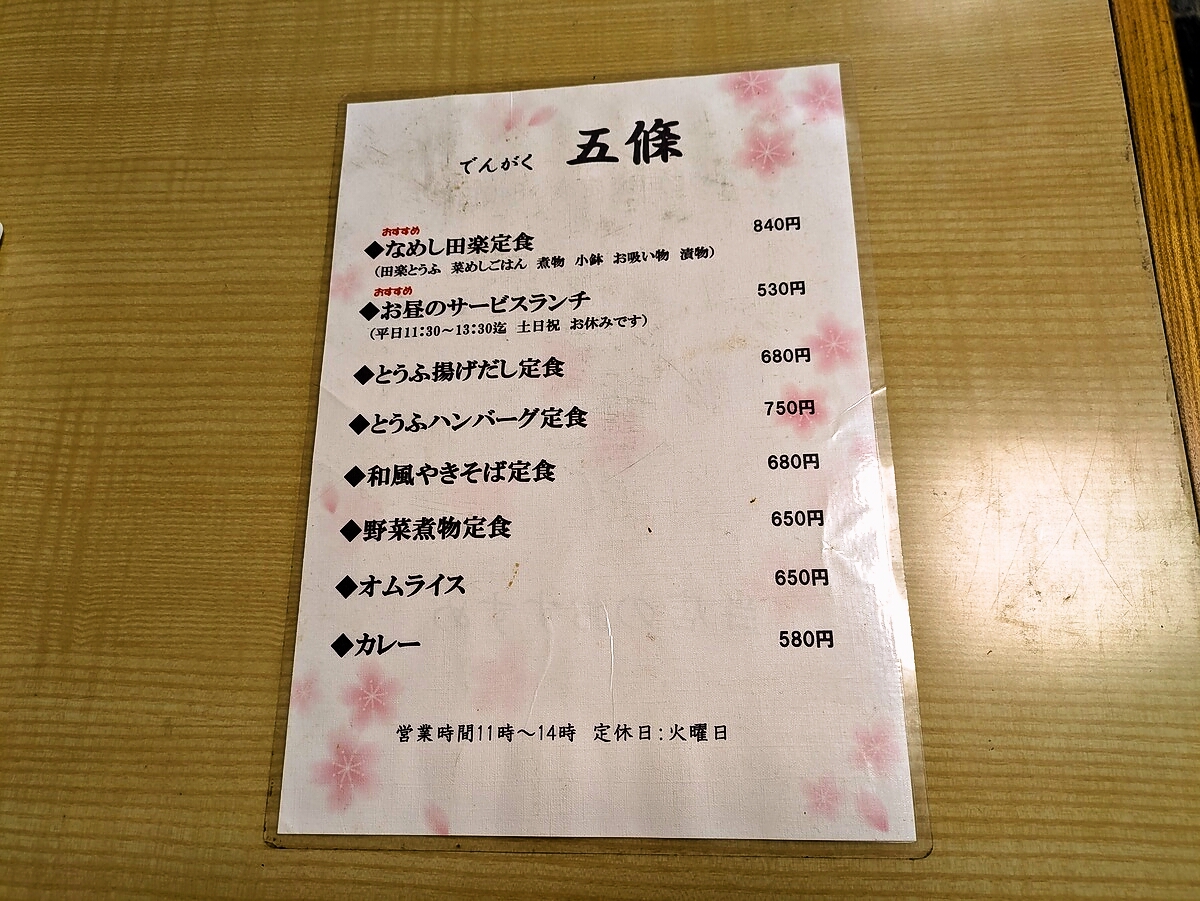 でんがく 五條
おすすめ
◆なめし田楽定食 840円
(田楽とうふ 菜めしごはん 煮物 小鉢 お吸い物 漬物)
おすすめ
◆お昼のサービスランチ 530円
(平日11:30～13:30迄 土日祝 お休みです)
◆とうふ揚げだし定食 680円
◆とうふハンバーグ定食 750円
◆和風やきそば定食 680円
◆野菜煮物定食 650円
◆オムライス 650円
◆カレー 580円
営業時間11時～14時 定休日:火曜日